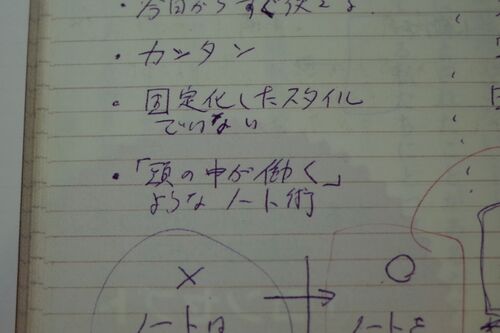 ・今日からすぐ使える
・カンタン
・固定化したスタイル
でいない
・「頭の中が働く」
ようなノート術
× ○
ノートは ノートを